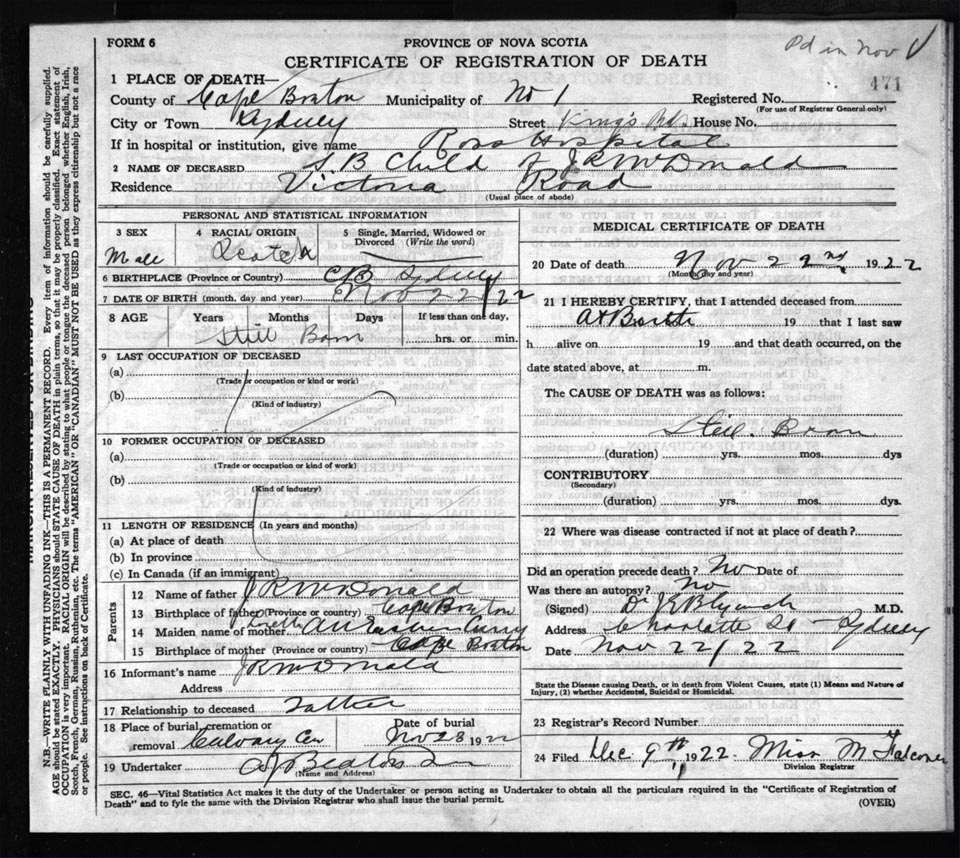 Pd in Nov
FORM 6
PROVINCE OF NOVA SCOTIA
CERTIFICATE OF REGISTRATION OF DEATH
471
1 PLACE OF DEATH—
County of Cape Breton Municipality of No 1 Registered No.
(For use of Registrar General only)
City or Town Sydney Street King's Rd House No.
If in hospital or institution, give name Ross Hospital
2 NAME OF DECEASED S B Child of J R McDonald
Residence Victoria Road
(Usual place of abode)
PERSONAL AND STATISTICAL INFORMATION
3 SEX Male
4 RACIAL ORIGIN Scotch
5 Single, Married, Widowed or Divorced (Write the word)
6 BIRTHPLACE (Province or Country) CB Sydney
7 DATE OF BIRTH (month, day and year) Nov 22/22
8 AGE Years Months Days If less than one day, hrs. or min.
Still Born
9 LAST OCCUPATION OF DECEASED
(a)
(Trade or occupation or kind or work)
(b)
(Kind of industry)
10 FORMER OCCUPATION OF DECEASED
(a)
(Trade or occupation or kind of work)
(b)
(Kind of industry)
11 LENGTH OF RESIDENCE (In years and months)
(a) At place of death
(b) In province
(c) In Canada (if an immigrant)
Parents
12 Name of father J R McDonald
13 Birthplace of father (Province or country) Cape Breton
14 Maiden name of mother Curry
15 Birthplace of mother (Province or country) Cape Breton
16 Informant's name J R McDonald
Address
17 Relationship to deceased Father
18 Place of burial, cremation or removal Calvary Cem
Date of burial Nov 23 1922
19 Undertaker A J Beaton
(Name and Address)
MEDICAL CERTIFICATE OF DEATH
20 Date of death Nov 22nd 1922
(Month, day and year)
21 I HEREBY CERTIFY, that I attended deceased from
at Birth 19 that I last saw
h alive on 19 and that death occurred, on the
date stated above, at m.
The CAUSE OF DEATH was as follows:
Still Born
(duration) yrs. mos. dys
CONTRIBUTORY
(Secondary)
(duration) yrs. mos. dys.
22 Where was disease contracted if not at place of death?
Did an operation precede death? No Date of
Was there an autopsy? No
(Signed) Dr M.D.
Address Charlotte St - Sydney
Date Nov 22/22
State the Disease causing Death, or in death from Violent Causes, state (1) Means and Nature of
Injury, (2) whether Accidental, Suicidal or Homicidal.
23 Registrar's Record Number
24 Filed Dec 9th 1922 Miss M Falconer
Division Registrar
SEC. 46—Vital Statistics Act makes it the duty of the Undertaker or person acting as Undertaker to obtain all the particulars required in the "Certificate of Registration of
Death" and to fyle the same with the Division Registrar who shall issue the burial permit.
(OVER)
N.B.—WRITE PLAINLY WITH UNFADING INK—THIS IS A PERMANENT RECORD. Every item of information should be carefully supplied.
AGE should be stated EXACTLY. PHYSICIANS should STATE CAUSE OF DEATH in plain terms, so that it may be properly classified. Exact statement of
OCCUPATION is very important. RACIAL ORIGIN will be described by stating to what people or tongue the deceased person belonged whether English, Irish,
Scotch, French, German, Russian, Ruthenian, etc. The terms "AMERICAN" OR "CANADIAN" MUST NOT BE USED as they express citizenship but not a race
or people. See instructions on back of Certificate.